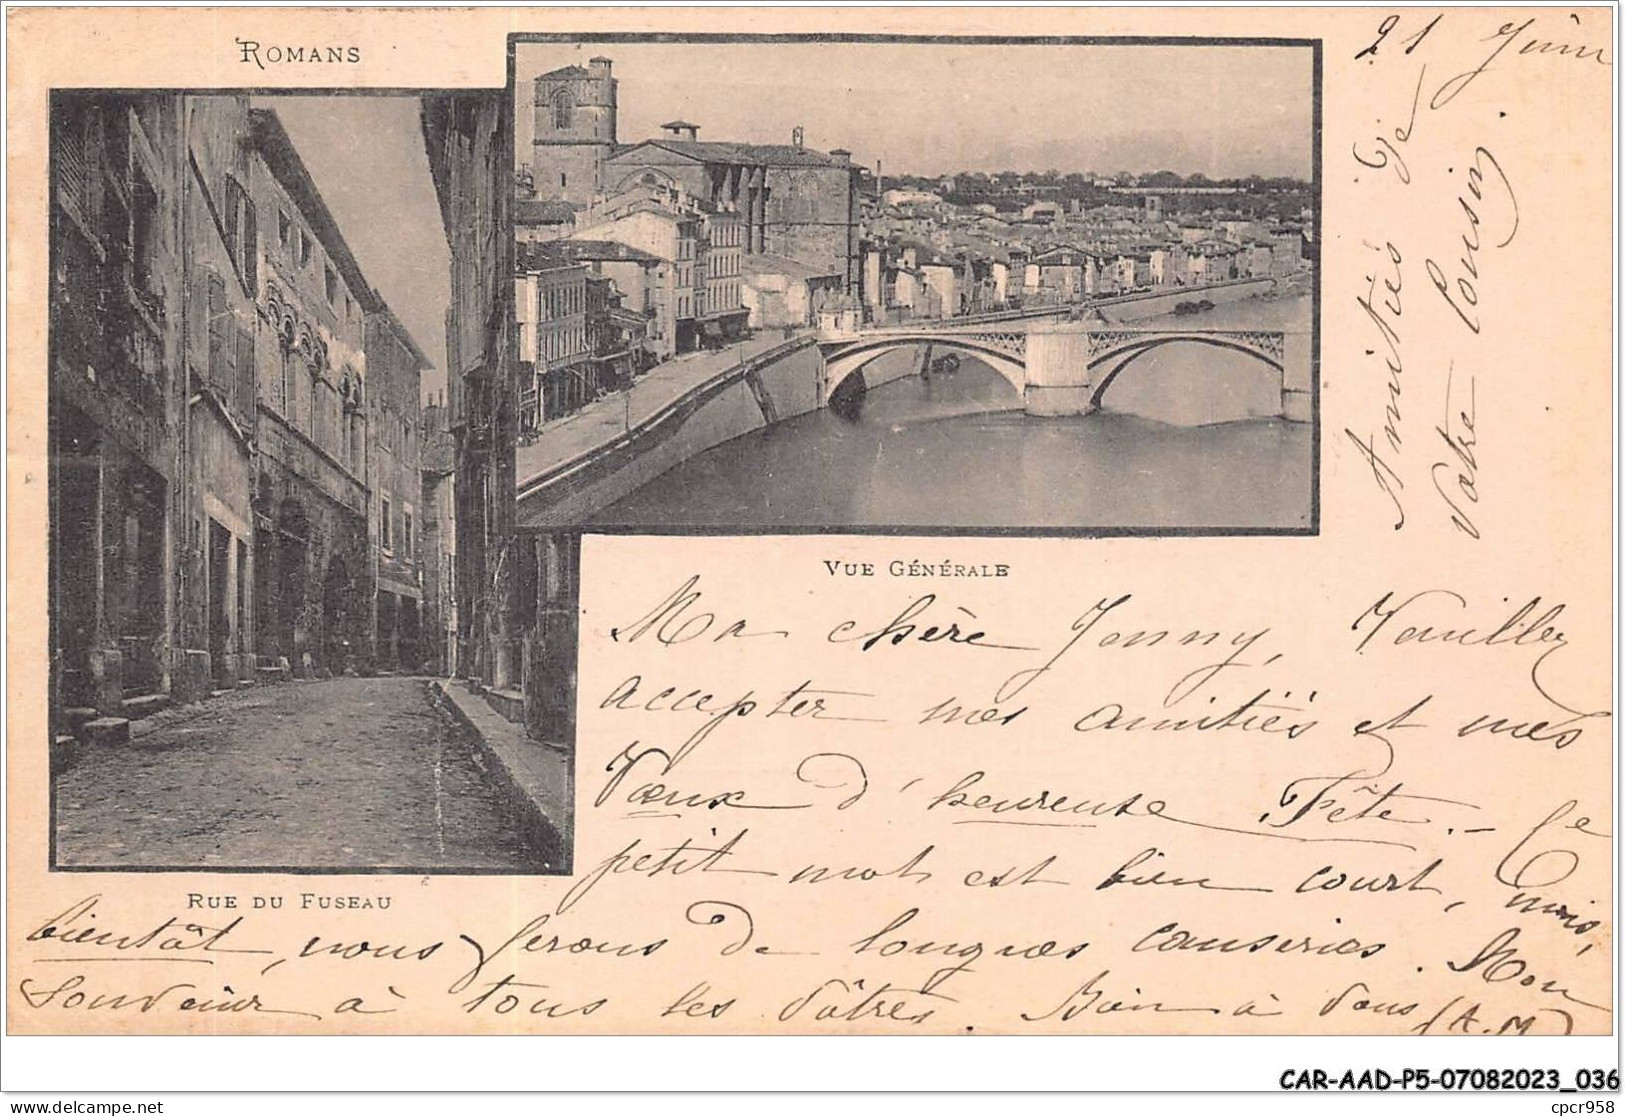 ROMANS
21 Juin
Amitiés de
Votre Cousin.
VUE GÉNÉRALE
Ma chère Jenny, Veuillez
accepter mes amitiés et mes
Vœux d'heureuse Fête. - Ce
petit mot est bien court, mais,
RUE DU FUSEAU
bientôt, nous ferons de longues causeries. Mon
Souvenir à tous les vôtres. Bien à Vous (A. M)
CAR-AAD-P5-07082023_036
delcampe.net
cpcr958